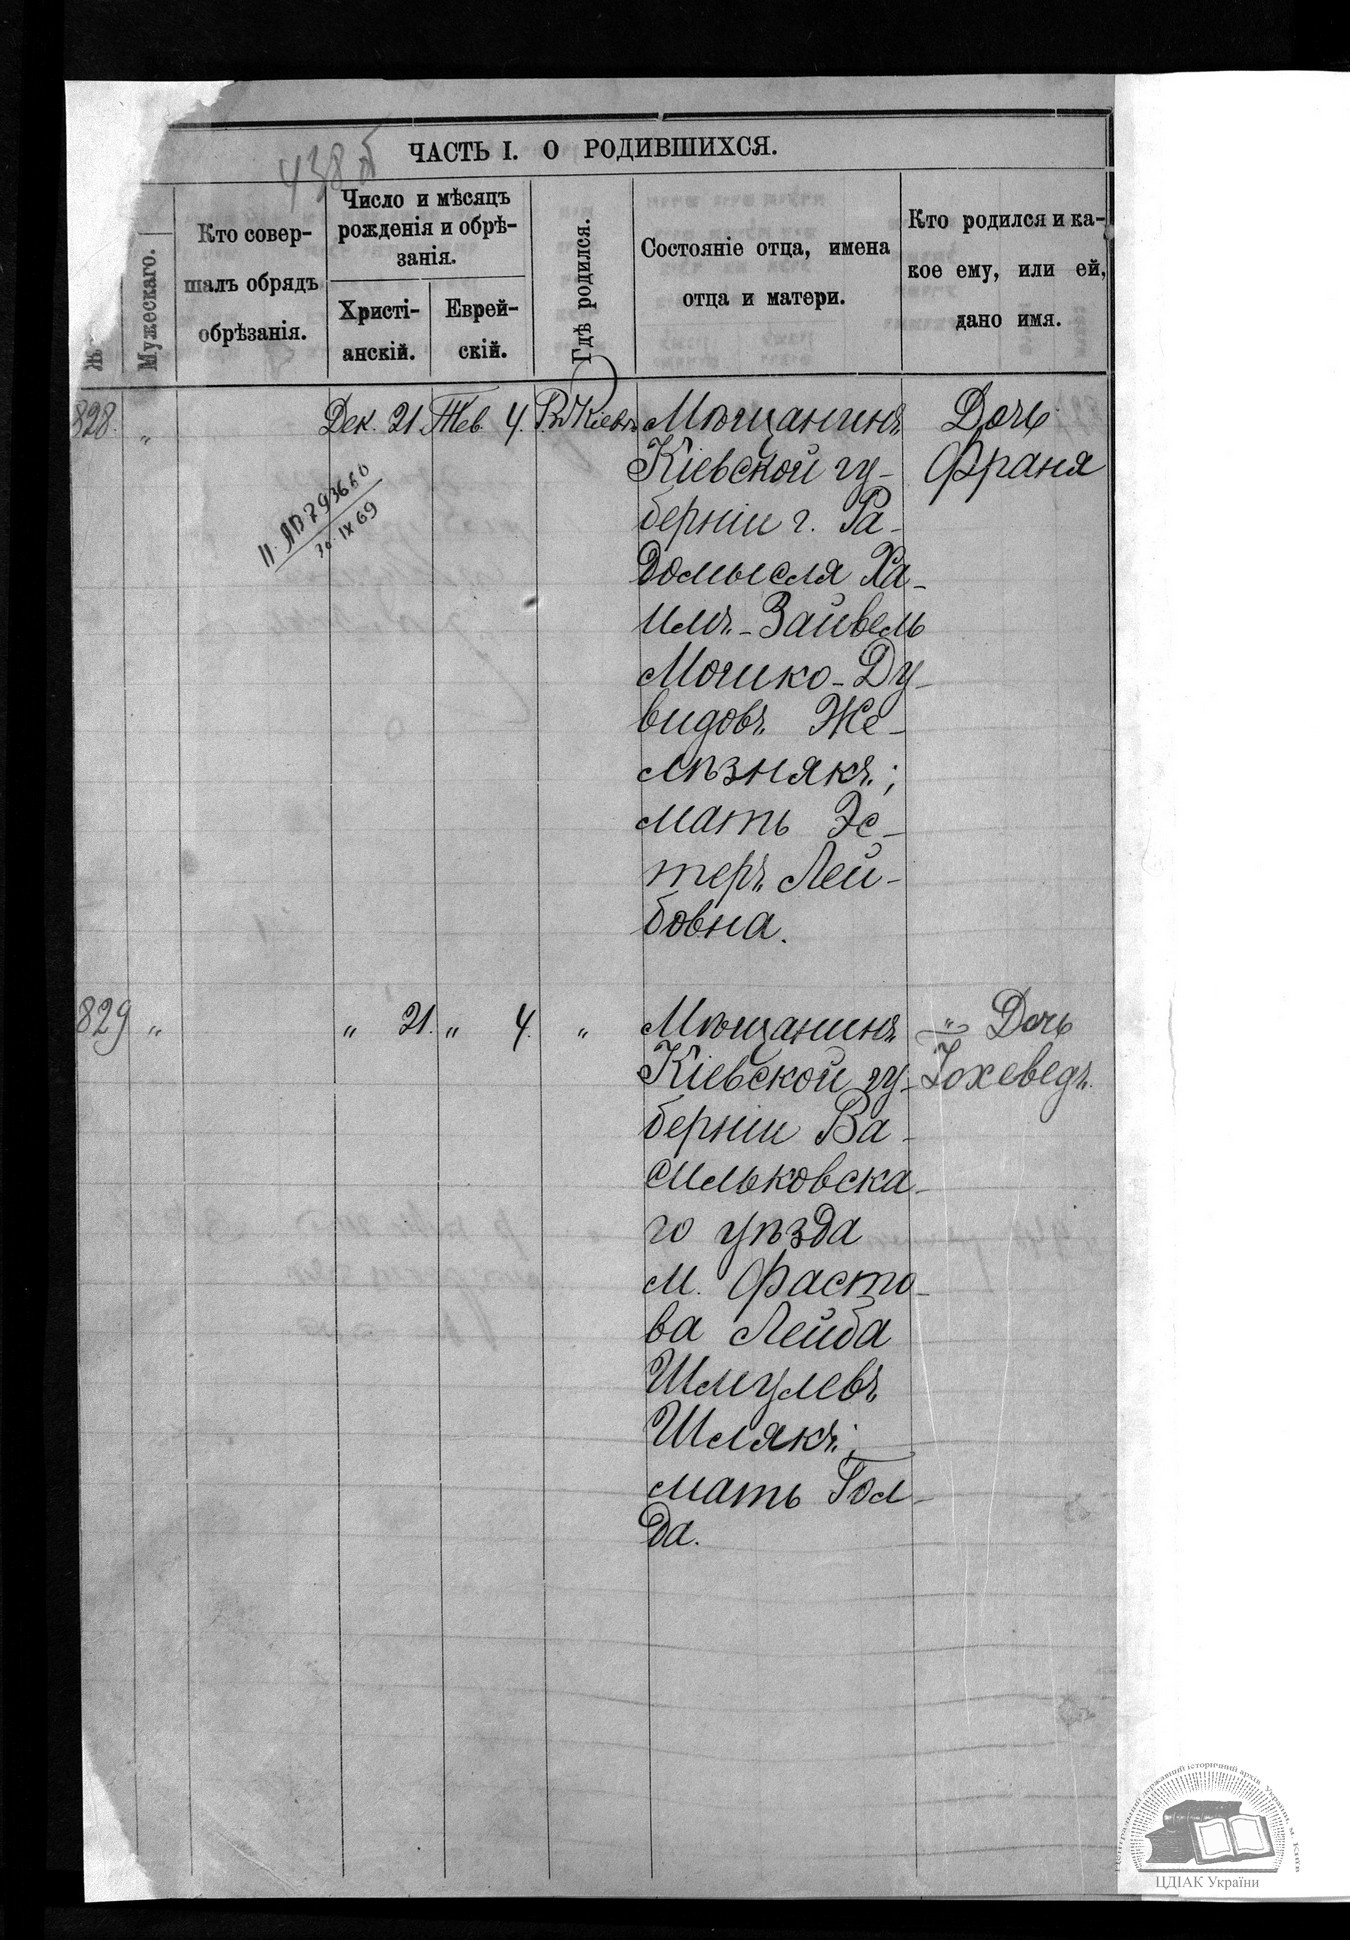 438 об
ЧАСТЬ I. О РОДИВШИХСЯ.
Мужескаго.
Кто совер-
шалъ обрядъ
обрѣзанія.
Число и мѣсяцъ
рожденія и обрѣ-
занія.
Христі-
анскій.
Еврей-
скій.
Гдѣ родился.
Состояніе отца, имена
отца и матери.
Кто родился и ка-
кое ему, или ей,
дано имя.
828. „ Дек. 21. Тев. 4. Въ Кіевѣ Мѣщанинъ Дочь
Кіевской гу- Франя
берніи г. Ра-
домысля Ха-
имъ-Зайвель
Мошко-Ду-
видовъ Же-
лѣзнякъ;
мать Эс-
теръ Лей-
бовна.
30 IX 69
829 „ „ 21. „ 4. „ Мѣщанинъ „ Дочь
Кіевской гу- Іохеведъ.
берніи Ва-
сильковска-
го уѣзда
м. Фасто-
ва Лейба
Шмулевъ
Шлякъ;
мать Гол-
да.
Центральний державний історичний архів України, м. Київ
ЦДІАК України